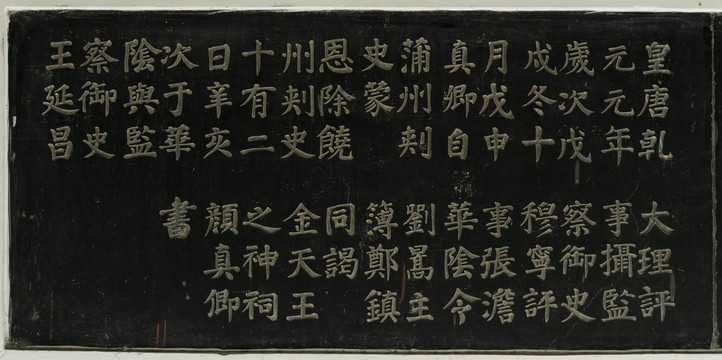 皇唐乾
元元年
歲次戊
戌冬十
月戊申
真卿自
蒲州刾
史蒙
恩除饒
州刾史
十有二
日辛亥
次于華
陰與監
察御史
王延昌
大理評
事攝監
察御史
穆寧評
事張澹
華陰令
劉暠主
簿鄭鎮
同謁
金天王
之神祠
顏真卿
書